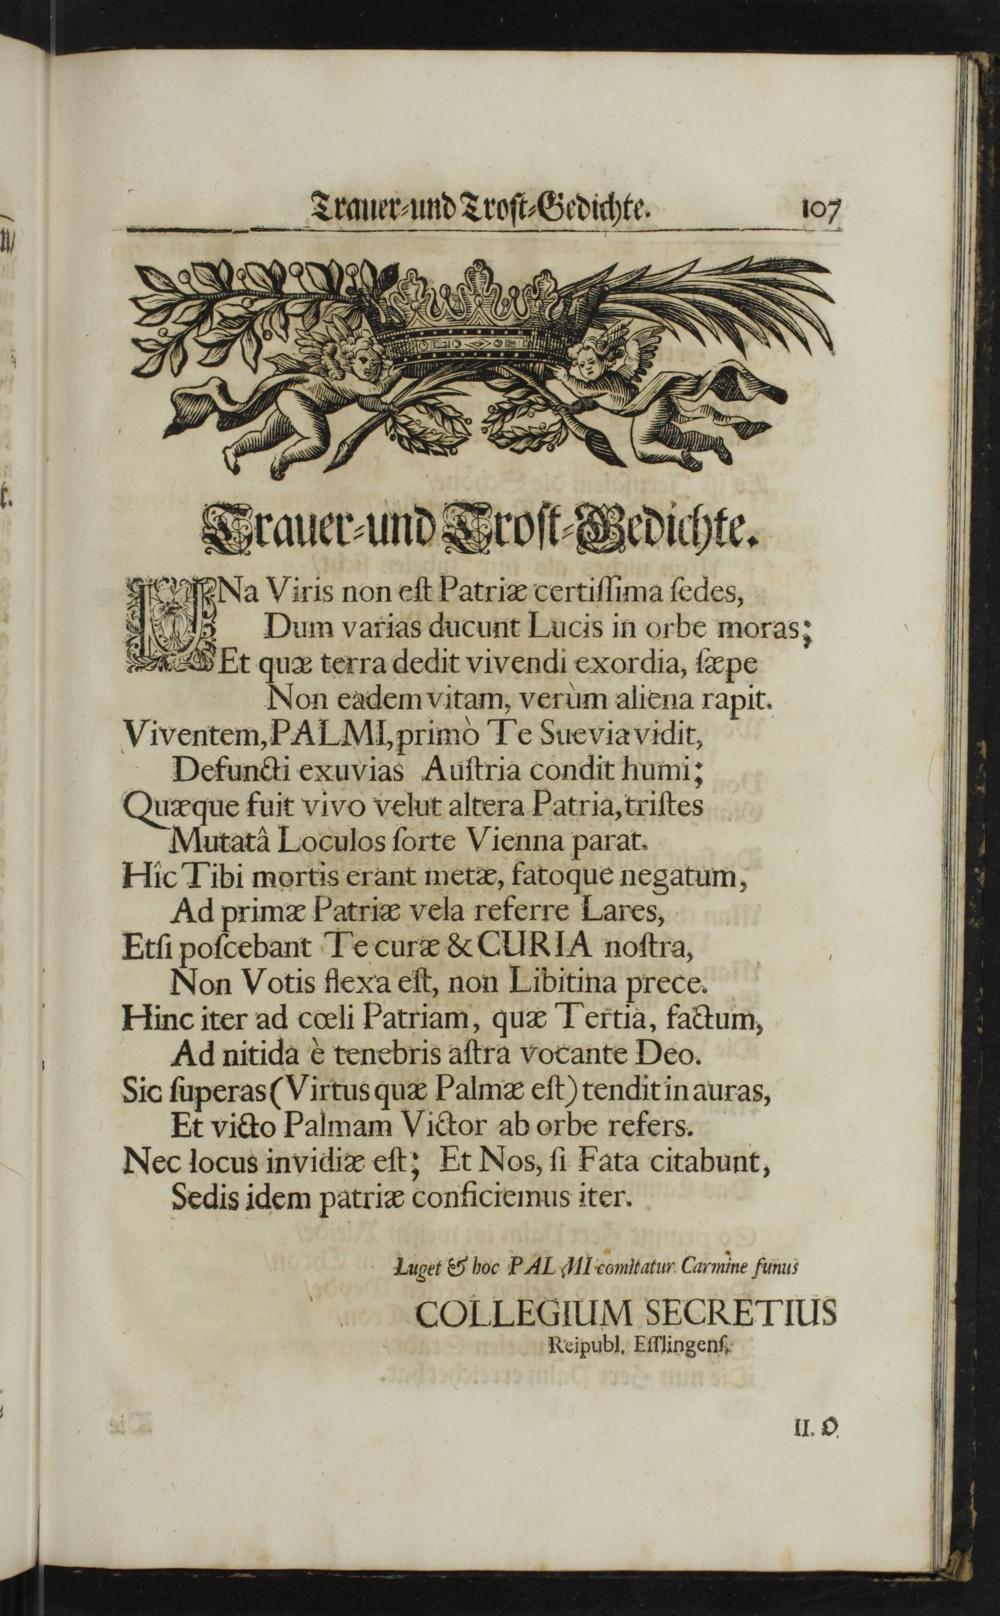 Trauer-und Trost-Gedichte. 107
Trauer-und Trost-Gedichte.
UNa Viris non eſt Patriæ certiſſima ſedes,
Dum varias ducunt Lucis in orbe moras;
Et quæ terra dedit vivendi exordia, ſæpe
Non eadem vitam, verùm aliena rapit.
Viventem, PALMI, primò Te Suevia vidit,
Defuncti exuvias Auſtria condit humi;
Quæque fuit vivo velut altera Patria, triſtes
Mutatâ Loculos ſorte Vienna parat.
Hîc Tibi mortis erant metæ, fatoque negatum,
Ad primæ Patriæ vela referre Lares,
Etſi poſcebant Te curæ & CURIA noſtra,
Non Votis flexa eſt, non Libitina prece.
Hinc iter ad cœli Patriam, quæ Tertia, factum,
Ad nitida è tenebris aſtra vocante Deo.
Sic ſuperas (Virtus quæ Palmæ eſt) tendit in auras,
Et victo Palmam Victor ab orbe refers.
Nec locus invidiæ eſt; Et Nos, ſi Fata citabunt,
Sedis idem patriæ conficiemus iter.
Luget & hoc PALMI comitatur Carmine funus
COLLEGIUM SECRETIUS
Reipubl. Eſſlingenſ.
II. O